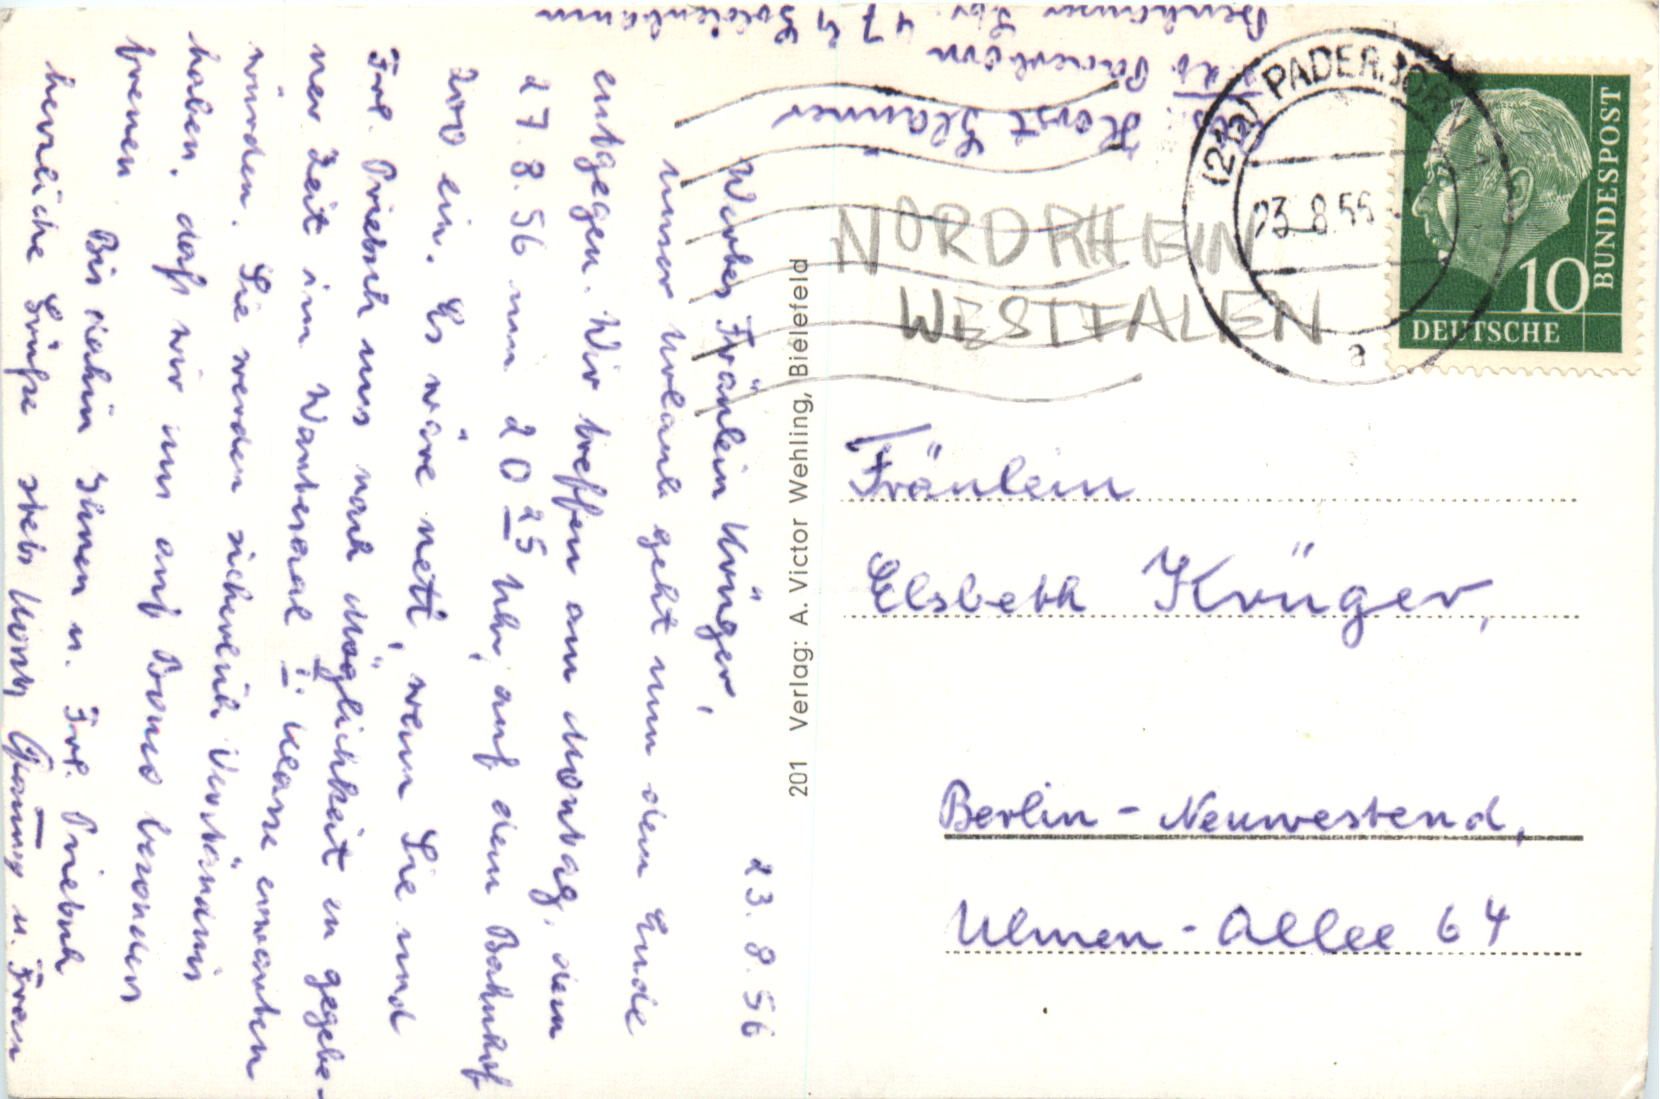 23. 8. 56
Wertes Fräulein Krüger,
unser Urlaub geht nun dem Ende
entgegen. Wir treffen am Montag, dem
27. 8. 56 um 20 25 Uhr, auf dem Bahnhof
Zoo ein. Es wäre nett, wenn Sie und
Frl. Priebsch uns nach Möglichkeit zu gegebe-
ner Zeit im Wartesaal II. Klasse erwarten
würden. Sie werden sicherlich Verständnis
haben, daß wir uns auf Bonzo besonders
freuen.
Bis dahin Ihnen u. Frl. Priebsch
herzliche Grüße stets Horst u. Frau
Horst
Paderborn
47
201 Verlag: A. Victor Wehling, Bielefeld
NORDRHEIN
WESTFALEN
(22a) PADERBORN
23.8.56
a
DEUTSCHE
BUNDESPOST
10
Fräulein
Elsbeth Krüger,
Berlin-Neuwestend,
Ulmen-Allee 64